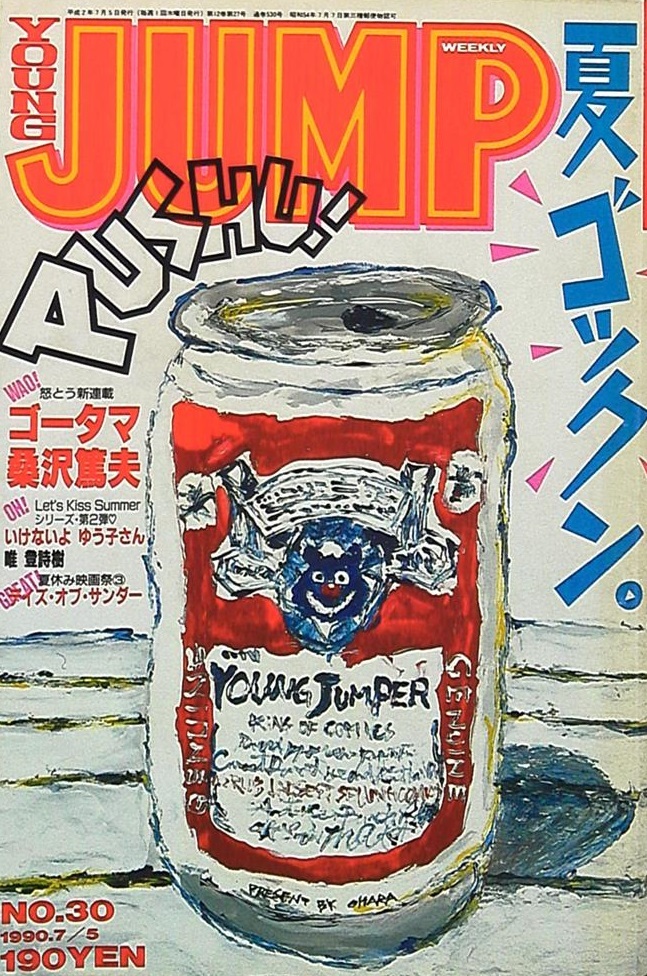 平成2年7月5日発行(毎週1回木曜日発行)第12巻第27号 通巻530号 昭和54年7月7日第三種郵便物認可
YOUNG
JUMP
WEEKLY
夏ゴックン。
PUSHU!
WAO!
怒とう新連載
ゴータマ
桑沢篤夫
OH!
Let's Kiss Summer
シリーズ・第2弾♡
いけないよ ゆう子さん
唯 登詩樹
GREAT!
夏休み映画祭③
デイズ・オブ・サンダー
GENUINE
YOUNG JUMPER
KING OF COMICS
GENUINE
PRESENT BY OHARA
NO.30
1990.7/5
190YEN